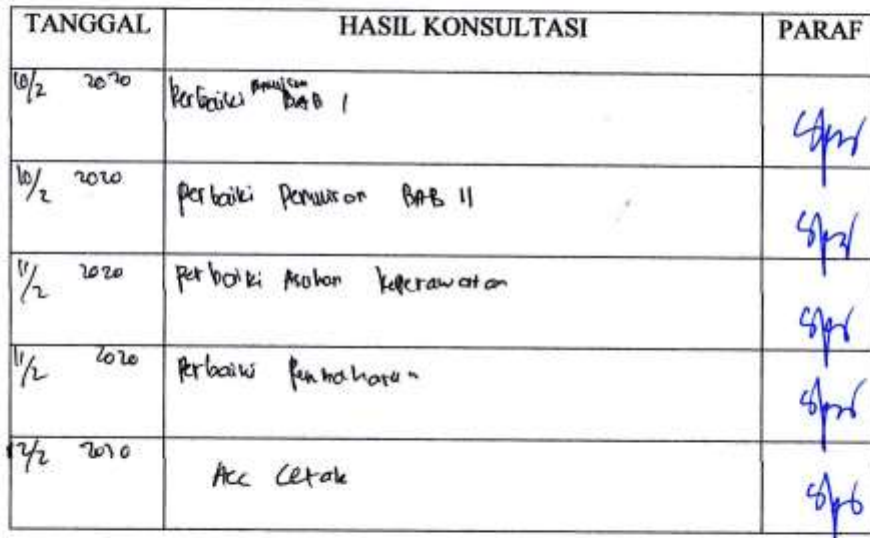 TANGGAL HASIL KONSULTASI PARAF
10/2 2020 Perbaiki Penulisan BAB I
10/2 2020 perbaiki Penulisan BAB II
11/2 2020 perbaiki Asuhan keperawatan
11/2 2020 Perbaiki Pembahasan
12/2 2020 Acc Cetak